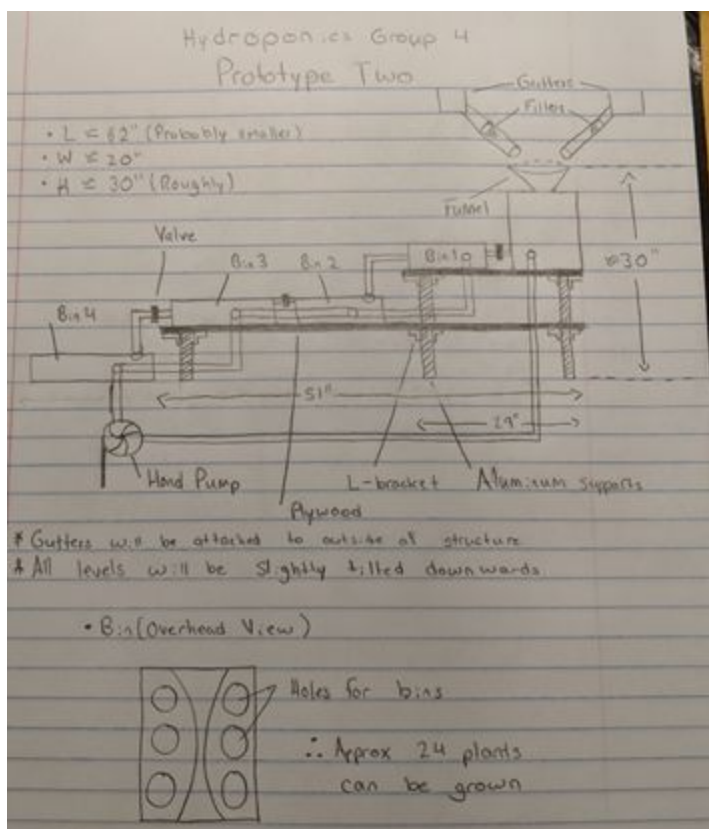 Hydroponics Group 4
Prototype Two
Gutters
Filter
• L ≤ 62" (Probably smaller)
• W ≤ 20"
• H ≤ 30" (Roughly)
Funnel
Valve
Bin 3
Bin 2
Bin 1
30"
Bin 4
51"
29"
Hand Pump
L-bracket
Aluminum supports
Plywood
* Gutters will be attached to outside of structure
* All levels will be slightly tilted downwards
• Bin (Overhead View)
Holes for bins
∴ Approx 24 plants
can be grown